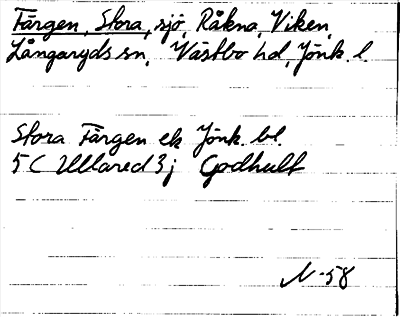 Färgen, Stora, sjö, Råkna, Viken,
Långaryds sn, Västbo hd, Jönk. l.
Stora Färgen ek Jönk. bl.
5 C Ullared 3 j Godhult
N-58